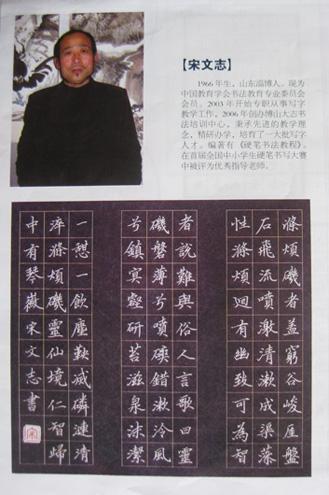 【宋文志】
1966年生，山东淄博人。现为
中国教育学会书法教育专业委员会
会员。2003年开始专职从事写字
教学工作，2006年创办博山大志书
法培训中心，秉承先进的教学理
念，精研办学，培育了一大批写字
人才。编著有《硬笔书法教程》。
在首届全国中小学生硬笔书写大赛
中被评为优秀指导老师。
滌煩磯者蓋窮谷峻厓盤
石飛流噴激清漱成渠藻
性滌煩迴有幽致可為智
者說難與俗人言歌曰靈
磯磐薄兮噴錯漱泠風
兮鎮冥壑研苔滋泉沫潔
一憇一飲塵鞅滅磷漣清
淬滌煩磯靈仙境仁智歸
中有琴徽宋文志書